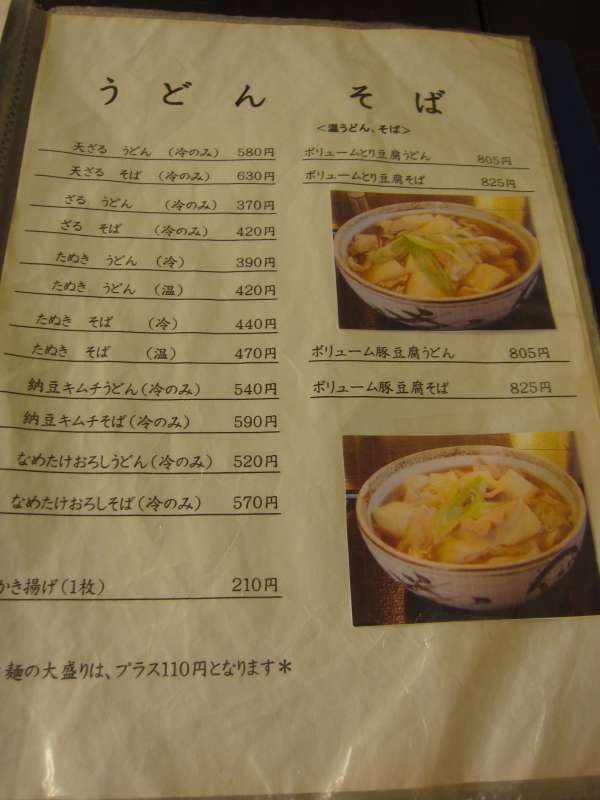 うどん そば
天ざる うどん (冷のみ) 580円
天ざる そば (冷のみ) 630円
ざる うどん (冷のみ) 370円
ざる そば (冷のみ) 420円
たぬき うどん (冷) 390円
たぬき うどん (温) 420円
たぬき そば (冷) 440円
たぬき そば (温) 470円
納豆キムチうどん(冷のみ) 540円
納豆キムチそば(冷のみ) 590円
なめたけおろしうどん(冷のみ) 520円
なめたけおろしそば(冷のみ) 570円
かき揚げ(1枚) 210円
麺の大盛りは、プラス110円となります*
<温うどん、そば>
ボリュームとり豆腐うどん 805円
ボリュームとり豆腐そば 825円
ボリューム豚豆腐うどん 805円
ボリューム豚豆腐そば 825円